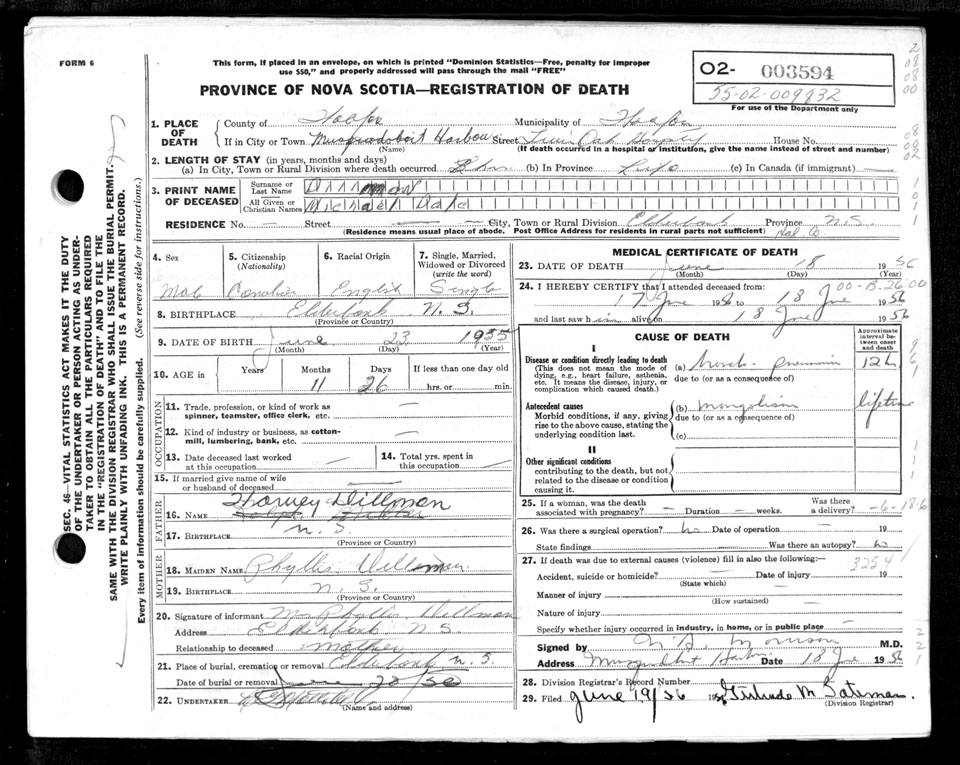 FORM 6
This form, if placed in an envelope, on which is printed "Dominion Statistics—Free, penalty for improper
use $50," and properly addressed will pass through the mail "FREE"
PROVINCE OF NOVA SCOTIA—REGISTRATION OF DEATH
02- 003594
55-02-009932
For use of the Department only
SEC. 46—VITAL STATISTICS ACT MAKES IT THE DUTY
OF THE UNDERTAKER OR PERSON ACTING AS UNDER-
TAKER TO OBTAIN ALL THE PARTICULARS REQUIRED
IN THE "REGISTRATION OF DEATH" AND TO FILE THE
SAME WITH THE DIVISION REGISTRAR WHO SHALL ISSUE THE BURIAL PERMIT.
WRITE PLAINLY WITH UNFADING INK. THIS IS A PERMANENT RECORD.
Every item of information should be carefully supplied. (See reverse side for instructions.)
1. PLACE OF DEATH County of Halifax Municipality of Halifax
If in City or Town Musquodoboit Harbour Street Twin Oaks Hospital House No.
(Name) (If death occurred in a hospital or institution, give the name instead of street and number)
2. LENGTH OF STAY (in years, months and days)
(a) In City, Town or Rural Division where death occurred (b) In Province Life (c) In Canada (if immigrant) —
3. PRINT NAME OF DECEASED Surname or Last Name Dillman
All Given or Christian Names Michael Dale
RESIDENCE No. — Street — City, Town or Rural Division Elderbank Province N.S.
(Residence means usual place of abode. Post Office Address for residents in rural parts not sufficient) Hal. Co.
4. Sex 5. Citizenship (Nationality) 6. Racial Origin 7. Single, Married, Widowed or Divorced (write the word)
Male Canadian English Single
8. BIRTHPLACE Elderbank N.S.
(Province or Country)
9. DATE OF BIRTH June 23 1955
(Month) (Day) (Year)
10. AGE in Years Months Days If less than one day old
11 26 hrs. or min.
OCCUPATION
11. Trade, profession, or kind of work as spinner, teamster, office clerk, etc. —
12. Kind of industry or business, as cotton-mill, lumbering, bank, etc. —
13. Date deceased last worked at this occupation —
14. Total yrs. spent in this occupation —
15. If married give name of wife or husband of deceased —
FATHER
Harvey Dillman
16. NAME
17. BIRTHPLACE N.S.
(Province or Country)
MOTHER
18. MAIDEN NAME Phyllis Dillman
19. BIRTHPLACE N.S.
(Province or Country)
20. Signature of informant Mrs Phyllis Dillman
Address Elderbank N.S.
Relationship to deceased mother
21. Place of burial, cremation or removal Elderbank N.S.
Date of burial or removal June 20/56
22. UNDERTAKER
(Name and address)
MEDICAL CERTIFICATE OF DEATH
23. DATE OF DEATH June 18 1956
(Month) (Day) (Year)
24. I HEREBY CERTIFY that I attended deceased from:
17 June 1956 to 18 June 1956
and last saw him alive on 18 June 1956
CAUSE OF DEATH
Approximate interval between onset and death
I
Disease or condition directly leading to death
(This does not mean the mode of dying, e.g., heart failure, asthenia, etc. It means the disease, injury, or complication which caused death.)
(a) Broncho-pneumonia 12 h.
due to (or as a consequence of)
Antecedent causes
Morbid conditions, if any, giving rise to the above cause, stating the underlying condition last.
(b) mongolism lifetime
due to (or as a consequence of)
(c)
II
Other significant conditions
contributing to the death, but not related to the disease or condition causing it.
25. If a woman, was the death associated with pregnancy? — Duration — weeks. Was there a delivery?
26. Was there a surgical operation? no Date of operation 19
State findings Was there an autopsy? no
27. If death was due to external causes (violence) fill in also the following: 3254
Accident, suicide or homicide? Date of injury 19
(State which)
Manner of injury
(How sustained)
Nature of injury
Specify whether injury occurred in industry, in home, or in public place —
Signed by M.D.
Address Musquodoboit Harbour Date 18 June 1956
28. Division Registrar's Record Number
29. Filed June 19/56 19 Gertrude M Bateman
(Division Registrar)